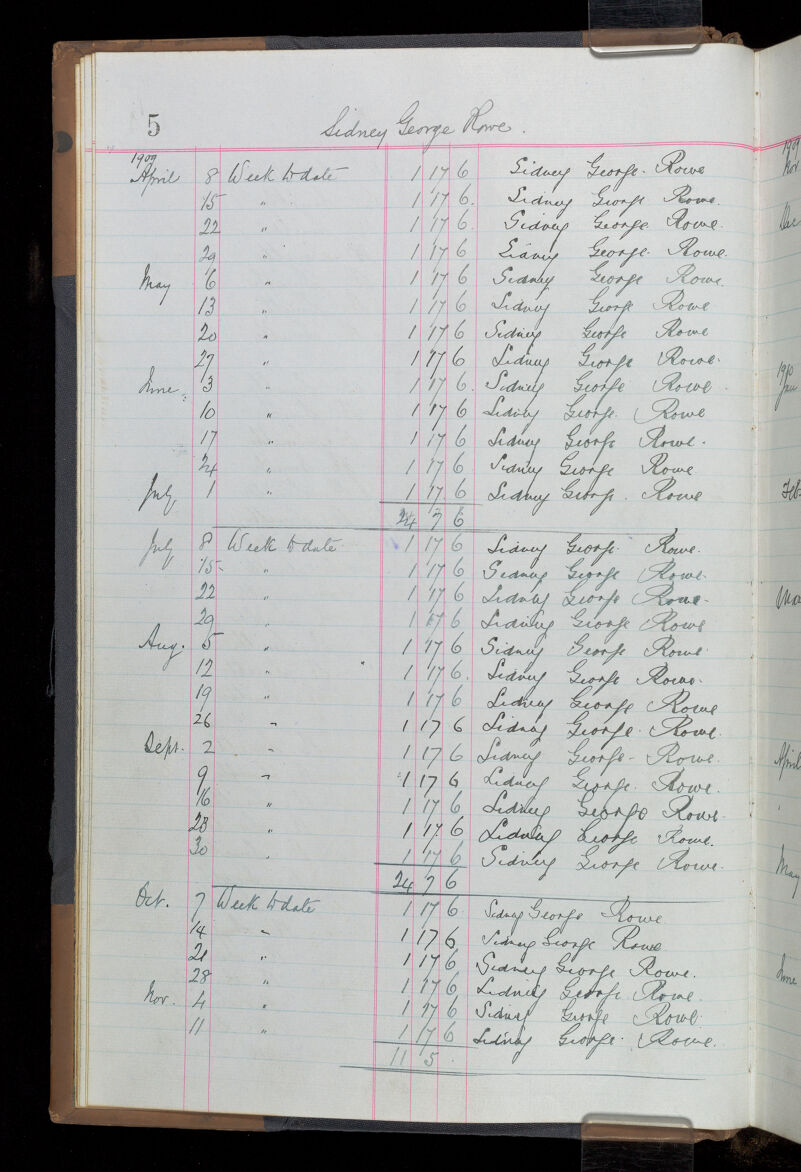 5
Sidney George Rowe.
1909
April 8 Week to date 1 17 6 Sidney George Rowe
15 " 1 17 6. Sidney George Rowe.
22 " 1 17 6. Sidney George Rowe.
29 " 1 17 6 Sidney George Rowe.
May 6 " 1 17 6 Sidney George Rowe.
13 " 1 17 6 Sidney George Rowe
20 " 1 17 6 Sidney George Rowe
27 " 1 17 6 Sidney George Rowe.
June 3 " 1 17 6. Sidney George Rowe.
10 " 1 17 6 Sidney George Rowe
17 " 1 17 6 Sidney George Rowe.
24 " 1 17 6 Sidney George Rowe
July 1 " 1 17 6 Sidney George Rowe
24 7 6
July 8 Week to date 1 17 6 Sidney George Rowe.
15 " 1 17 6 Sidney George Rowe.
22 " 1 17 6 Sidney George Rowe.
29 " 1 17 6 Sidney George Rowe
Aug. 5 " 1 17 6 Sidney George Rowe.
12 " 1 17 6. Sidney George Rowe.
19 " 1 17 6 Sidney George Rowe
26 " 1 17 6 Sidney George Rowe.
Sept. 2 " 1 17 6 Sidney George Rowe.
9 " 1 17 6 Sidney George Rowe.
16 " 1 17 6 Sidney George Rowe
23 " 1 17 6 Sidney George Rowe.
30 " 1 17 6 Sidney George Rowe.
24 7 6
Oct. 7 Week to date 1 17 6 Sidney George Rowe
14 " 1 17 6 Sidney George Rowe
21 " 1 17 6 Sidney George Rowe.
28 " 1 17 6 Sidney George Rowe.
Nov. 4 " 1 17 6 Sidney George Rowe
11 " 1 17 6 Sidney George Rowe.
11 5 .
1909
Nov
Dec
1910
Jan
Feb
April
May
June